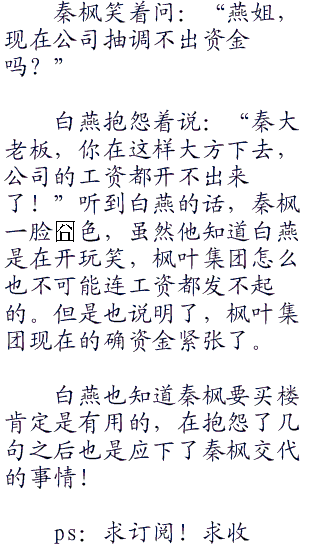 秦枫笑着问：“燕姐，
现在公司抽调不出资金
吗？”
白燕抱怨着说：“秦大
老板，你在这样大方下去，
公司的工资都开不出来
了！”听到白燕的话，秦枫
一脸囧色，虽然他知道白燕
是在开玩笑，枫叶集团怎么
也不可能连工资都发不起
的。但是也说明了，枫叶集
团现在的确资金紧张了。
白燕也知道秦枫要买楼
肯定是有用的，在抱怨了几
句之后也是应下了秦枫交代
的事情！
ps：求订阅！求收